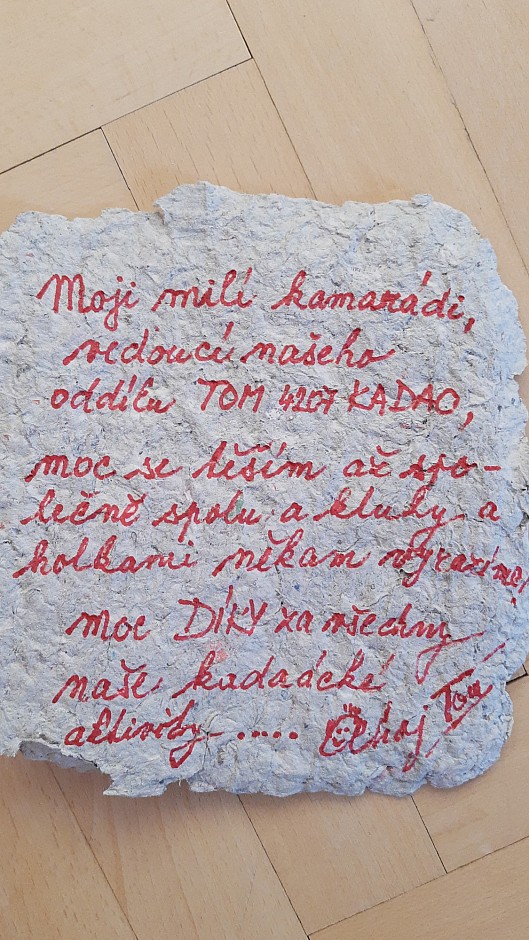 Moji milí kamarádi,
vedoucí našeho
oddílu TOM 4207 KADAO,
moc se těším až spo-
lečně spolu a kluky a
holkami někam vyrazíme,
moc DÍKY za všechny
naše kadaácké
aktivity.....  Ahoj Tom